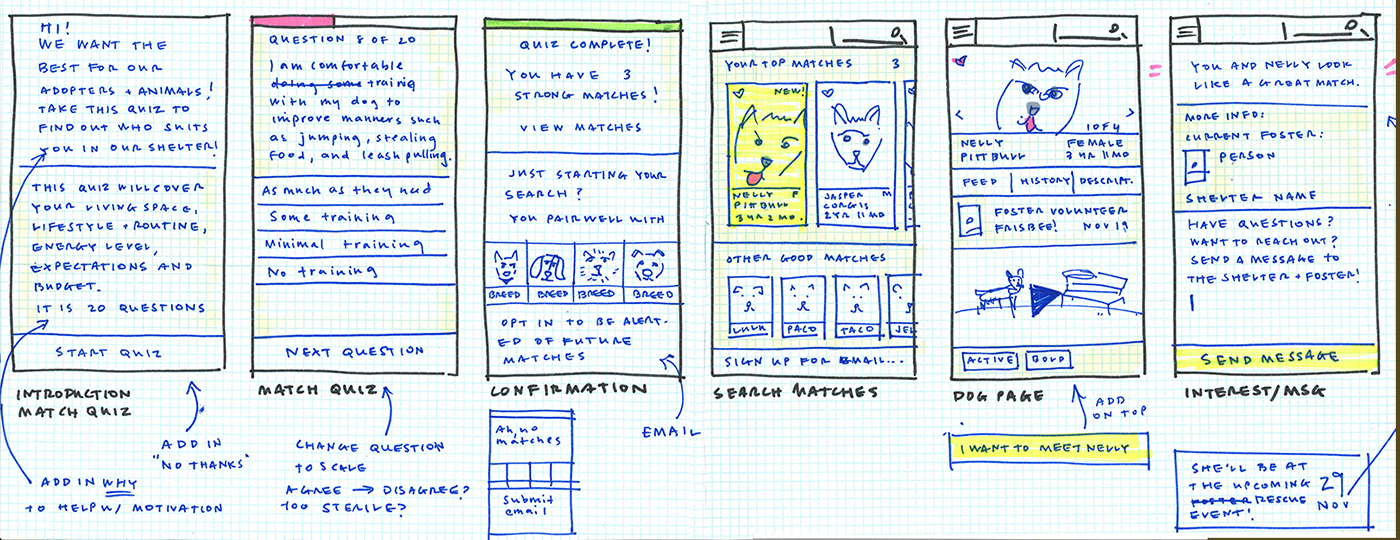 HI!
WE WANT THE
BEST FOR OUR
ADOPTERS + ANIMALS!
TAKE THIS QUIZ TO
FIND OUT WHO SUITS
YOU IN OUR SHELTER!
THIS QUIZ WILL COVER
YOUR LIVING SPACE,
LIFESTYLE + ROUTINE,
ENERGY LEVEL,
EXPECTATIONS AND
BUDGET.
IT IS 20 QUESTIONS
START QUIZ
INTRODUCTION
MATCH QUIZ
ADD IN
"NO THANKS"
ADD IN WHY
TO HELP W/ MOTIVATION
QUESTION 8 OF 20
I am comfortable
doing some training
with my dog to
improve manners such
as jumping, stealing
food, and leash pulling.
As much as they need
Some training
Minimal training
No training
NEXT QUESTION
MATCH QUIZ
CHANGE QUESTION
TO SCALE
AGREE → DISAGREE?
TOO STERILE?
QUIZ COMPLETE!
YOU HAVE 3
STRONG MATCHES!
VIEW MATCHES
JUST STARTING YOUR
SEARCH?
YOU PAIR WELL WITH
BREED BREED BREED BREED
OPT IN TO BE ALERT-
ED OF FUTURE
MATCHES
CONFIRMATION
EMAIL
Ah, no
matches
Submit
email
YOUR TOP MATCHES 3
NEW!
NELLY F
PITTBULL
3 YR 2 MO.
JASPER M
CORGIS
2 YR 11 MO
OTHER GOOD MATCHES
LULU PACO TACO JEL
SIGN UP FOR EMAIL...
SEARCH MATCHES
1 OF 4
NELLY FEMALE
PITTBULL 3 YR 11 MO
FEED HISTORY DESCRIPT.
FOSTER VOLUNTEER
FRISBEE! NOV 19
ACTIVE BOLD
DOG PAGE
ADD
ON TOP
I WANT TO MEET NELLY
YOU AND NELLY LOOK
LIKE A GREAT MATCH.
MORE INFO:
CURRENT FOSTER:
PERSON
SHELTER NAME
HAVE QUESTIONS?
WANT TO REACH OUT?
SEND A MESSAGE TO
THE SHELTER + FOSTER!
SEND MESSAGE
INTEREST/MSG
SHE'LL BE AT
THE UPCOMING
FOSTER RESCUE
EVENT!
29
NOV